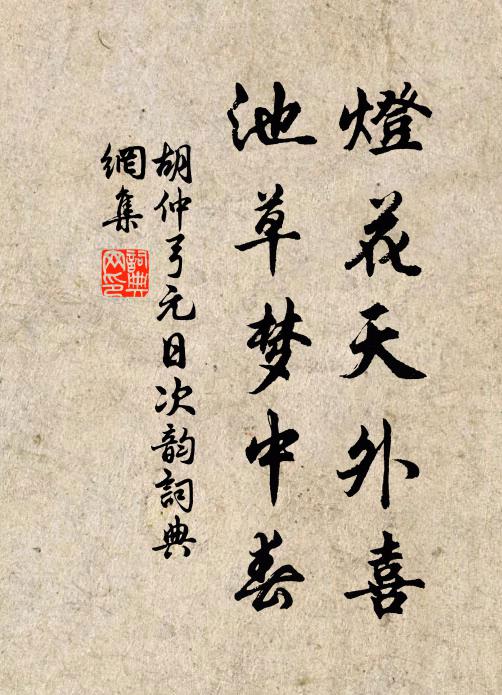 燈花天外喜
池草梦中春
胡仲弓元日次韵詞典
網集
詞典网印